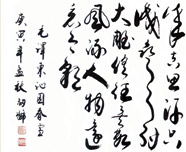 成吉思汗只
识弯弓射
大雕俱往矣数
風流人物還
看今朝
毛澤東沁园春雪
庚寅年孟秋